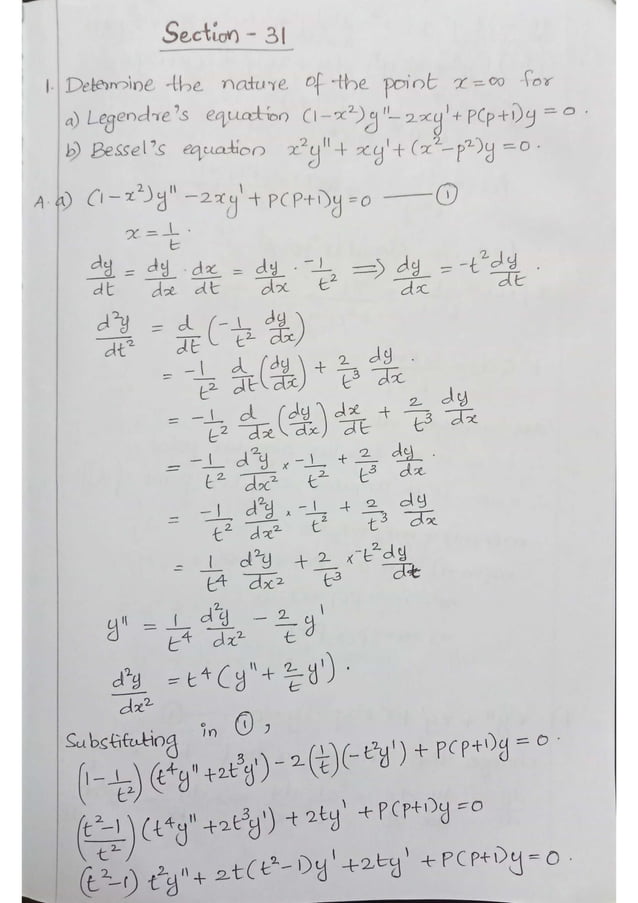 Section - 31
1. Determine the nature of the point x=∞ for
a) Legendre's equation (1-x²)y"-2xy'+P(p+1)y=0.
b) Bessel's equation x²y"+xy'+(x²-p²)y=0.
A. a) (1-x²)y"-2xy'+P(P+1)y=0 —— ①
x = 1/t.
dy/dt = dy/dx · dx/dt = dy/dx · -1/t² ⇒ dy/dx = -t² dy/dt.
d²y/dt² = d/dt (-1/t² dy/dx)
= -1/t² d/dt (dy/dx) + 2/t³ dy/dx.
= -1/t² d/dx (dy/dx) dx/dt + 2/t³ dy/dx
= -1/t² d²y/dx² × -1/t² + 2/t³ dy/dx.
= -1/t² d²y/dx² × -1/t² + 2/t³ dy/dx
= 1/t⁴ d²y/dx² + 2/t³ × -t² dy/dt
y" = 1/t⁴ d²y/dx² - 2/t y'
d²y/dx² = t⁴(y" + 2/t y').
Substituting in ①,
(1-1/t²)(t⁴y"+2t³y')-2(1/t)(-t²y')+P(P+1)y=0.
(t²-1/t²)(t⁴y"+2t³y')+2ty'+P(P+1)y=0
(t²-1)t²y"+2t(t²-1)y'+2ty'+P(P+1)y=0.